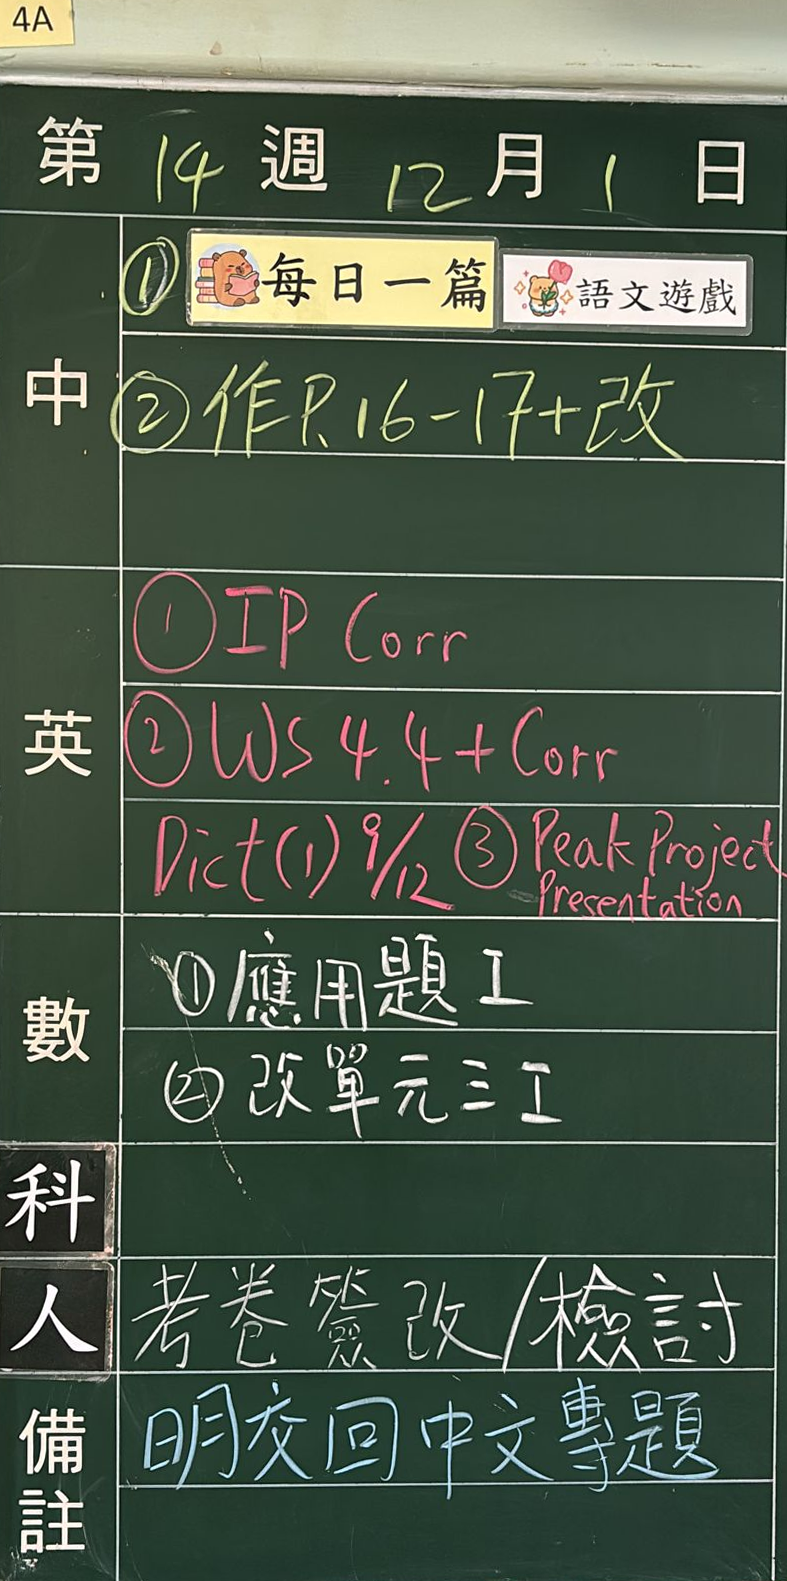 4A
第 14 週 12 月 1 日
中
① 每日一篇 語文遊戲
② 作P.16-17+改
英
① IP Corr
② WS 4.4 + Corr
Dict(1) 9/12 ③ Peak Project
Presentation
數
① 應用題工
② 改單元三工
科
人
考卷簽改/檢討
備註
明交回中文專題